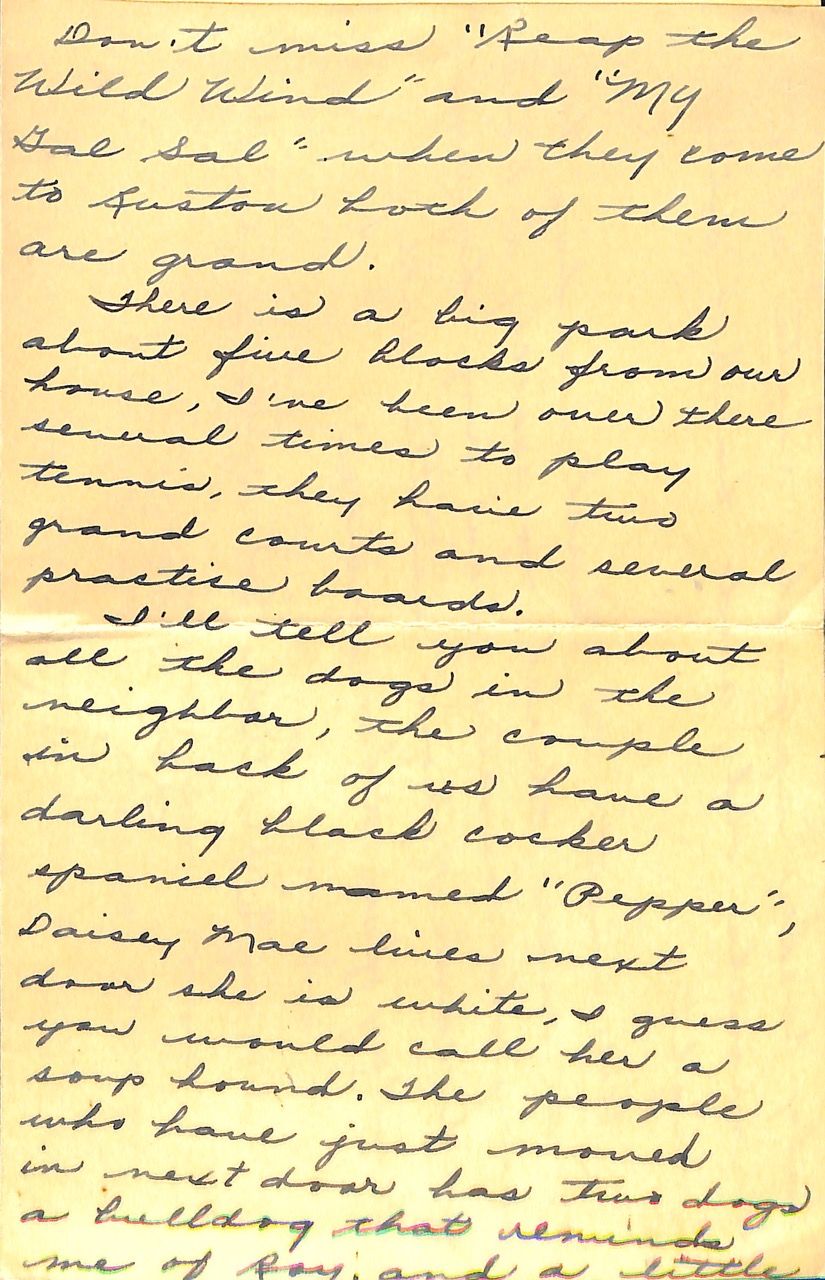 Don't miss "Reap the
Wild Wind" and "My
Gal Sal" when they come
to Ruston both of them
are grand.
There is a big park
about five blocks from our
house, I've been over there
several times to play
tennis, they have two
grand courts and several
practise boards.
I'll tell you about
all the dogs in the
neighbor, the couple
in back of us have a
darling black cocker
spaniel named "Pepper",
Daisey Mae lives next
door she is white, I guess
you would call her a
soup hound. The people
who have just moved
in next door has two dogs
a bulldog that reminds
me of Roy, and a little